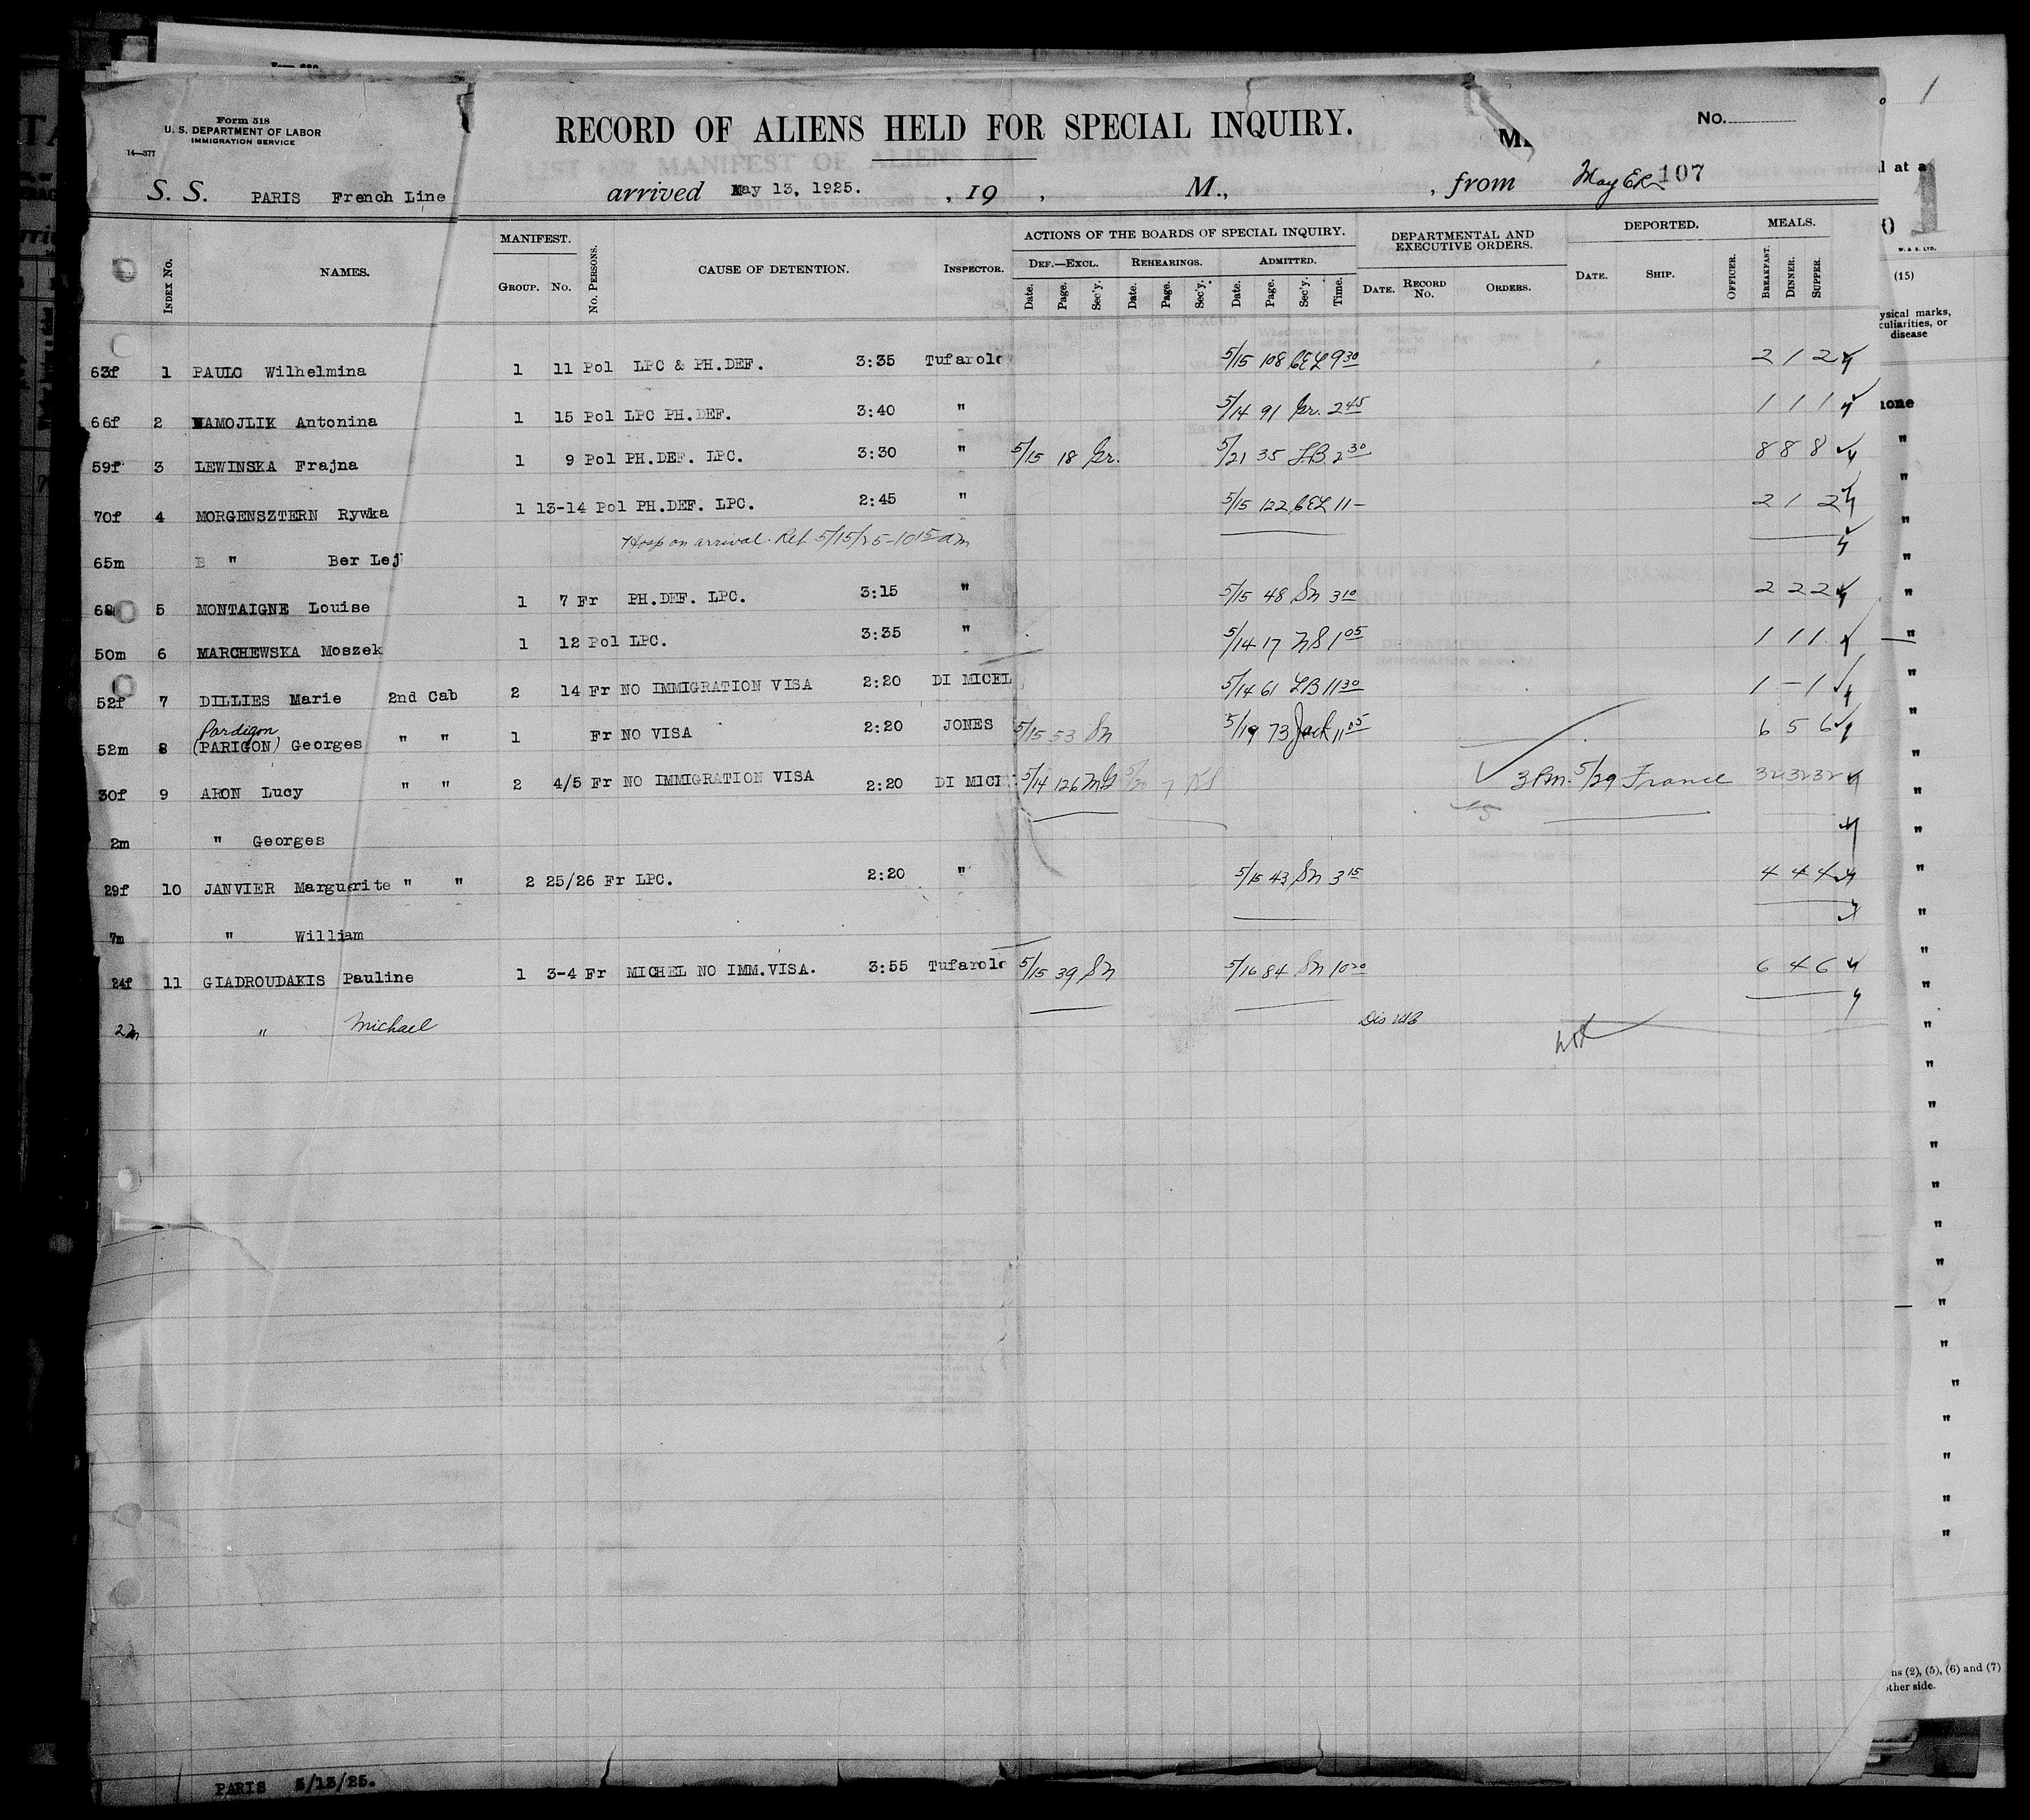 Form 518
U. S. DEPARTMENT OF LABOR
IMMIGRATION SERVICE
14—377
RECORD OF ALIENS HELD FOR SPECIAL INQUIRY.
No.
S. S. PARIS French Line arrived May 13, 1925. , 19 , M., , from 107
INDEX No. NAMES. MANIFEST. GROUP. No. No. PERSONS. CAUSE OF DETENTION. INSPECTOR. ACTIONS OF THE BOARDS OF SPECIAL INQUIRY. DEF.—EXCL. Date. Page. Sec'y. REHEARINGS. Date. Page. Sec'y. ADMITTED. Date. Page. Sec'y. Time. DEPARTMENTAL AND EXECUTIVE ORDERS. DATE. RECORD No. ORDERS. DEPORTED. DATE. SHIP. OFFICER. MEALS. BREAKFAST. DINNER. SUPPER.
63f 1 PAULC Wilhelmina 1 11 Pol LPC & PH.DEF. 3:35 Tufarolo 5/15 108 CEL 9 30 2 1 2
66f 2 MAMOJLIK Antonina 1 15 Pol LPC PH.DEF. 3:40 " 5/14 91 Gr. 2 45 1 1 1
59f 3 LEWINSKA Frajna 1 9 Pol PH.DEF. LPC. 3:30 " 5/15 18 Gr. 5/21 35 LB 2 30 8 8 8
70f 4 MORGENSZTERN Rywka 1 13-14 Pol PH.DEF. LPC. 2:45 " 5/15 122 CEL 11 – 2 1 2
Hosp on arrival. Rel 5/15/25-10 15 am
65m " Ber Lej
68 5 MONTAIGNE Louise 1 7 Fr PH.DEF. LPC. 3:15 " 5/15 48 Sn 3 10 2 2 2
50m 6 MARCHEWSKA Moszek 1 12 Pol LPC. 3:35 " 5/14 17 NS 1 05 1 1 1
52f 7 DILLIES Marie 2nd Cab 2 14 Fr NO IMMIGRATION VISA 2:20 DI MICEL 5/14 61 LB 11 30 1 – 1
Pardigon
52m 8 (PARIGON) Georges " " 1 Fr NO VISA 2:20 JONES 5/15 53 Sn 5/19 73 Jack 11 05 6 5 6
30f 9 ARON Lucy " " 2 4/5 Fr NO IMMIGRATION VISA 2:20 DI MICI 5/14 126 3 Pm. 5/29 France 32 32 32
2m " Georges
29f 10 JANVIER Marguerite " " 2 25/26 Fr LPC. 2:20 " 5/15 43 Sn 3 15 4 4 4
7m " William
24f 11 GIADROUDAKIS Pauline 1 3-4 Fr MICHEL NO IMM.VISA. 3:55 Tufarolo 5/15 39 Sn 5/16 84 Sn 10 20 6 4 6
2m " Michael
PARIS 5/13/25.
1
l at a
1
W. & S. LTD.
(15)
ysical marks,
culiarities, or
disease
none
ns (2), (5), (6) and (7)
other side.